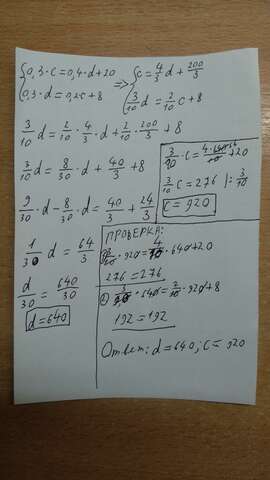 {0,3·c=0,4·d+20 => {c=4/3 d+200/3
{0,3·d=0,2c+8 {3/10 d=2/10 c+8
3/10 d=2/10·4/3·d+2/10·200/3+8
3/10 d=8/30 d+40/3+8
9/30·d-8/30·d=40/3+24/3
1/30 d=64/3
d/30=640/30
d=640
3/10·c=4·640/10+20
3/10 c=276 |:3/10
c=920
ПРОВЕРКА:
3/10·920=4/10·640+20
276=276
2) 3/10·640=2/10·920+8
192=192
Ответ: d=640; c=920